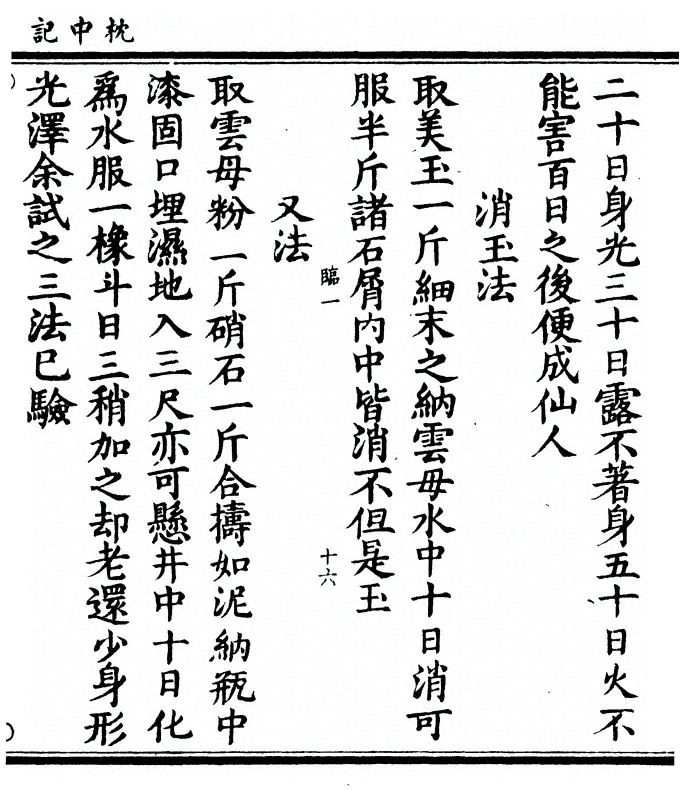 枕中記
二十日身光三十日露不著身五十日火不
能害百日之後便成仙人
消玉法
取美玉一斤細末之納雲母水中十日消可
服半斤諸石屑內中皆消不但是玉
臨一
十六
又法
取雲母粉一斤硝石一斤合擣如泥納瓶中
漆固口埋濕地入三尺亦可懸井中十日化
爲水服一橡斗日三稍加之却老還少身形
光澤余試之三法已驗